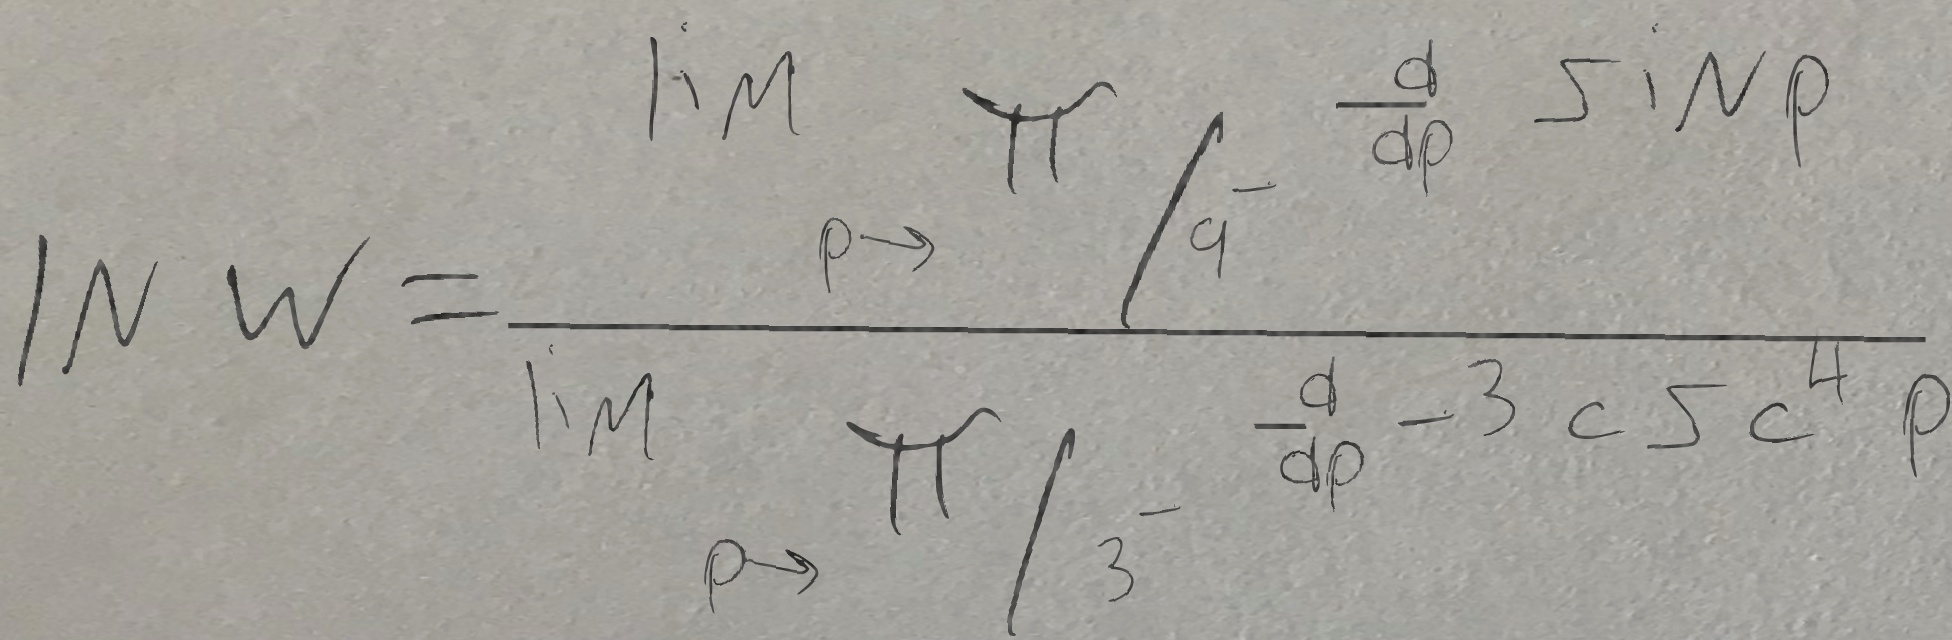 ln w = \frac{\lim_{p \to \pi/9^-} \frac{d}{dp} \sin p}{\lim_{p \to \pi/3^-} \frac{d}{dp} -3 \csc^4 p}